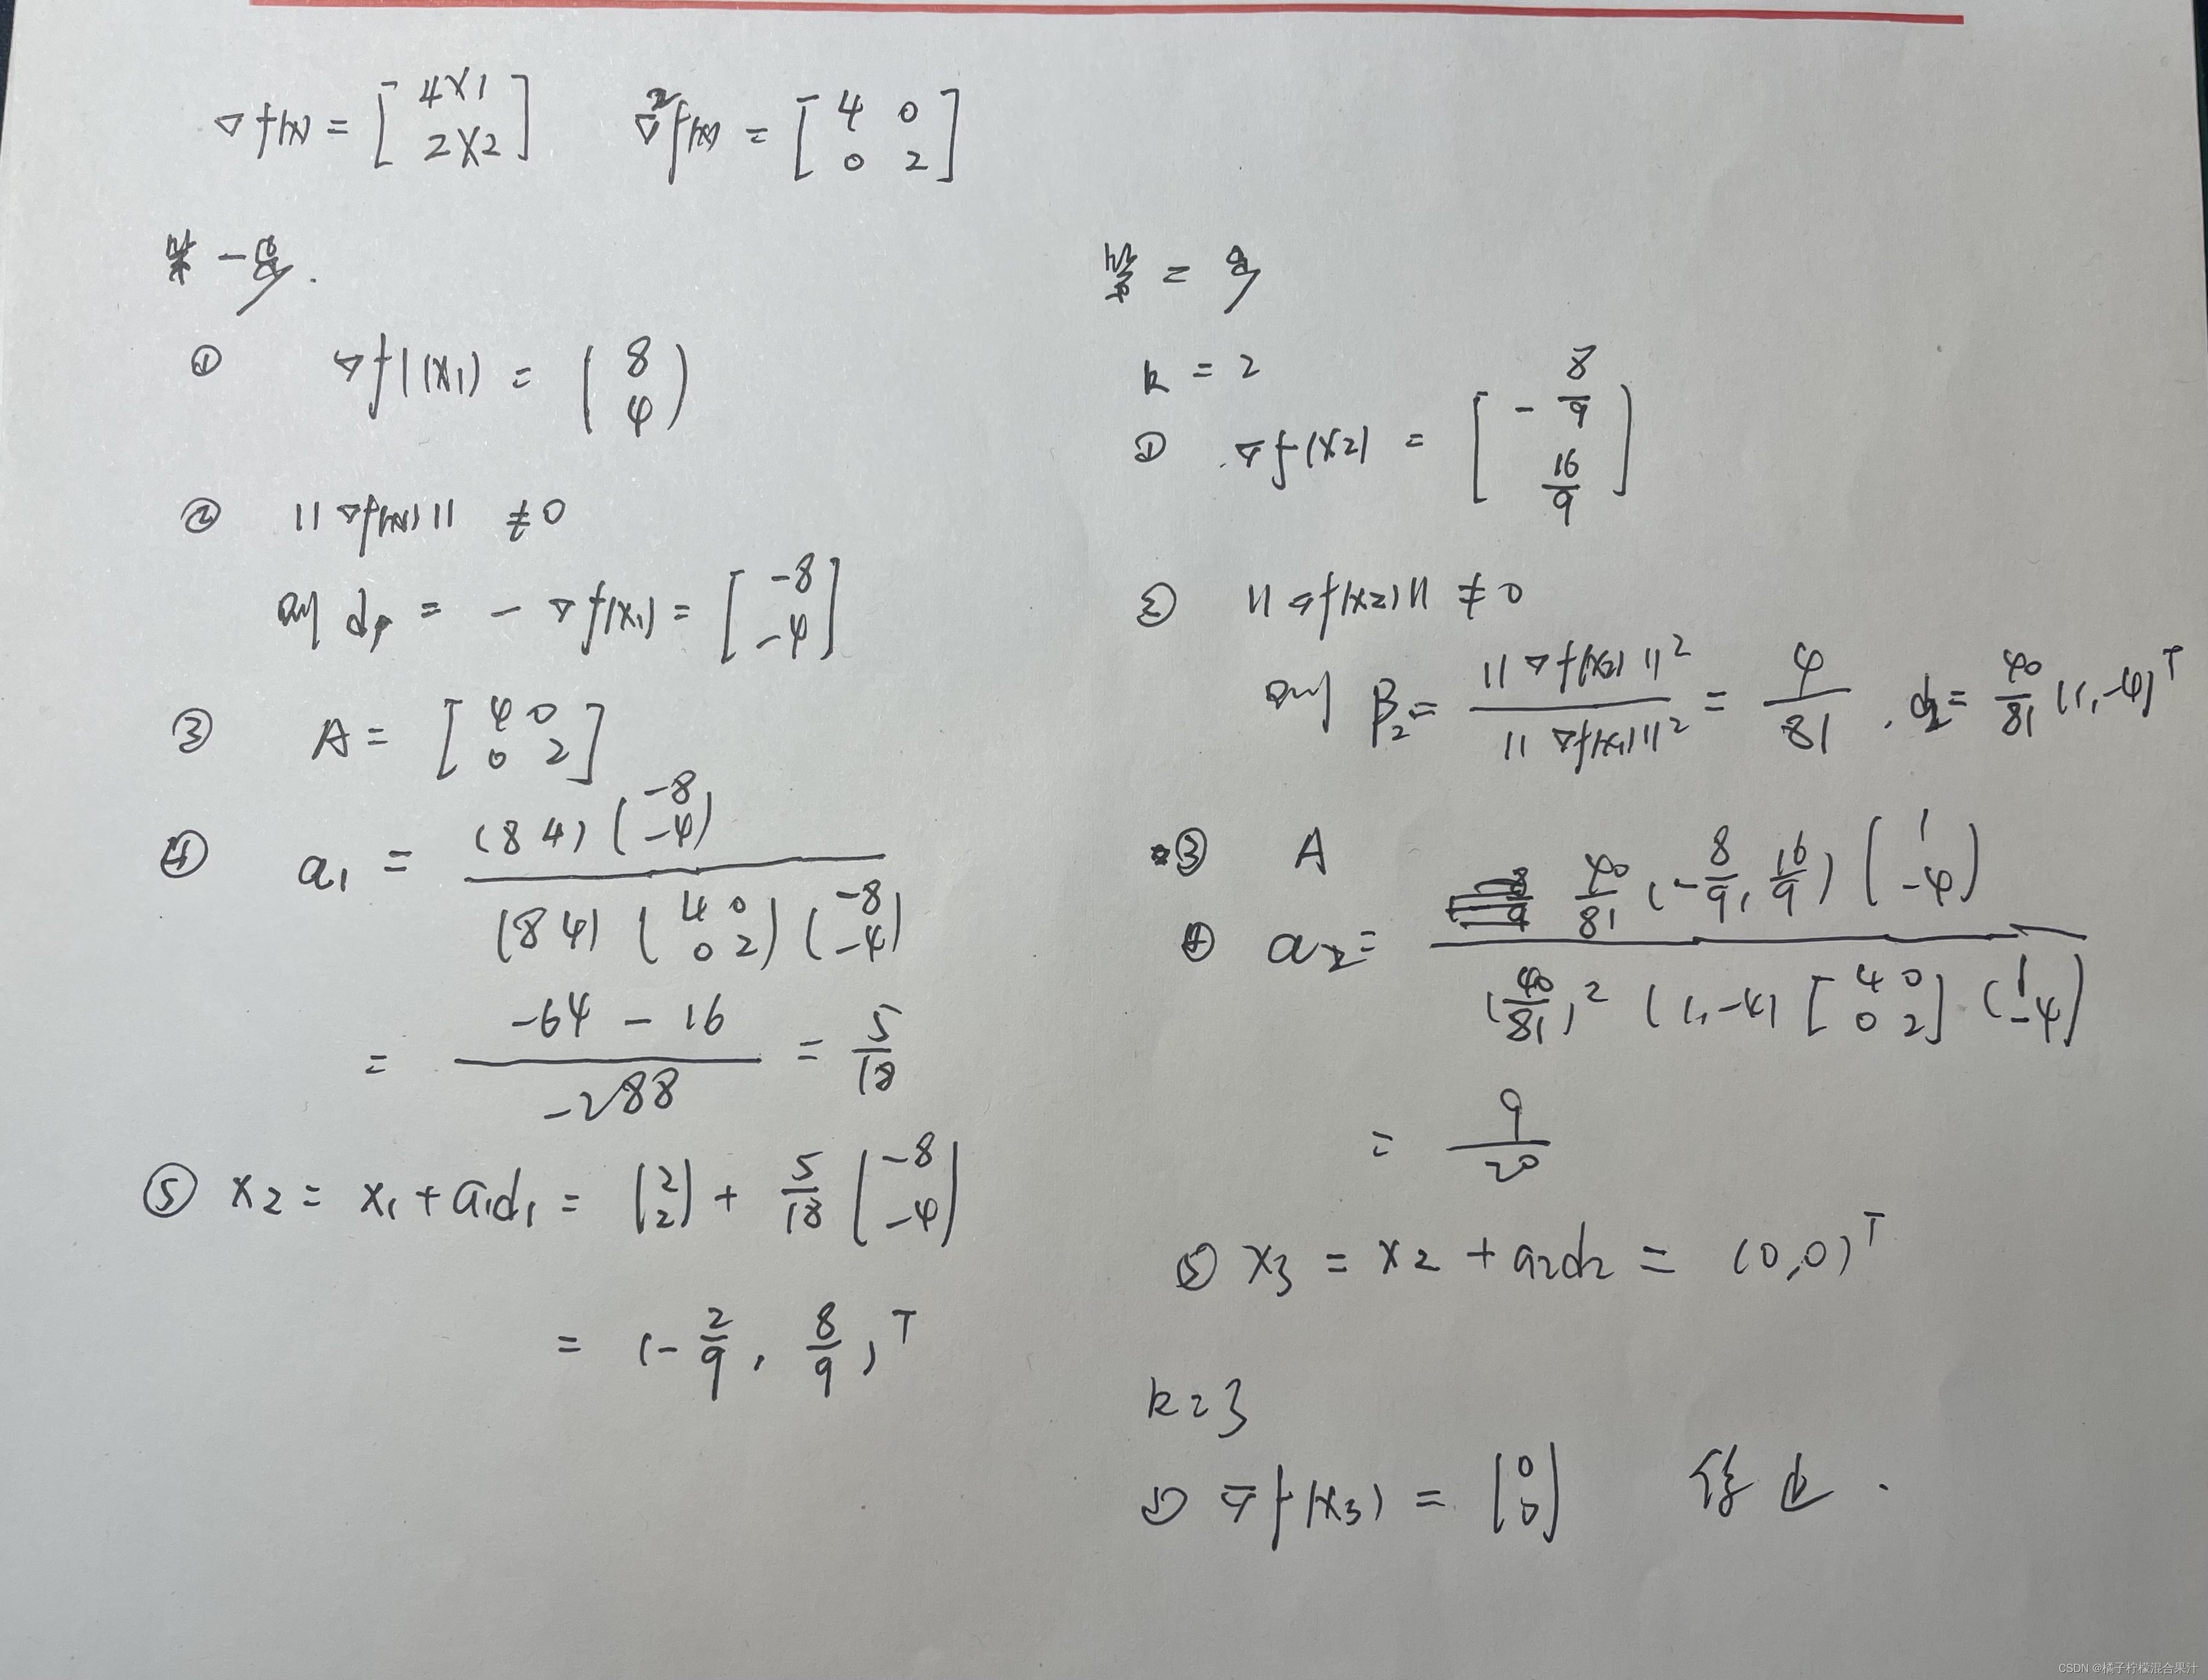 ∇f(x) = [4x1 2x2] ∇²f(x) = [4 0 0 2]
第一步.
① ∇f(x1) = (8 4)
② ||∇f(x1)|| ≠0
则 d1 = -∇f(x1) = [-8 -4]
③ A = [4 0 0 2]
④ a1 = (8 4)(-8 -4) / (8 4)(4 0 0 2)(-8 -4)
= -64 - 16 / -288 = 5/18
⑤ x2 = x1 + a1d1 = (2 2) + 5/18 (-8 -4)
= (-2/9, 8/9)T
第二步
k = 2
① ∇f(x2) = [-8/9 16/9]
② ||∇f(x2)|| ≠0
则 β2 = ||∇f(x2)||² / ||∇f(x1)||² = 4/81 , d2 = 40/81 (1,-4)T
③ A
④ a2 = 40/81 (-8/9, 16/9)(1 -4) / (40/81)² (1,-4)[4 0 0 2](1 -4)
= 9/20
⑤ x3 = x2 + a2d2 = (0,0)T
k=3
① ∇f(x3) = (0 0) 停止.
CSDN @橘子柠檬混合果汁